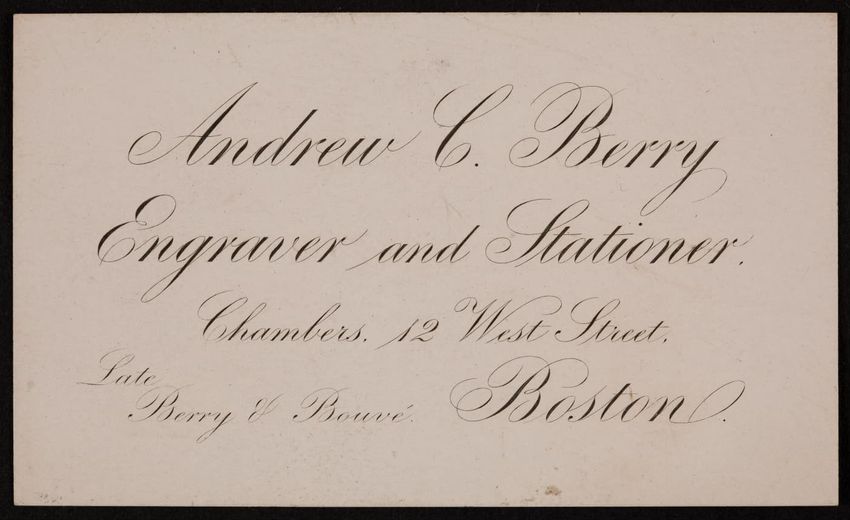 Andrew C. Berry
Engraver and Stationer.
Chambers, 12 West Street,
Late
Berry & Bouvé.
Boston.